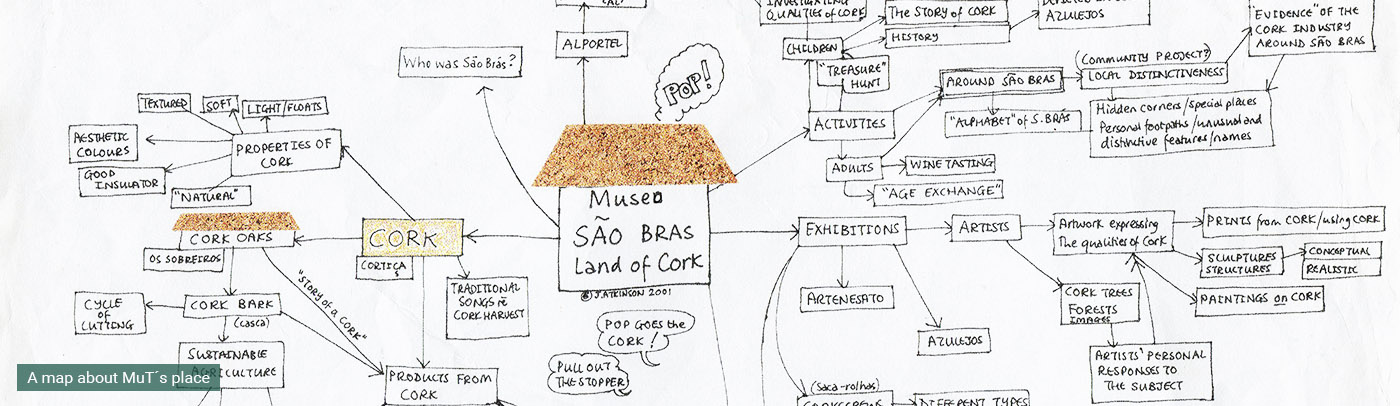 INVESTIGATING
QUALITIES of CORK
The STORY of CORK
HISTORY
AZULEJOS
"EVIDENCE" OF THE
CORK INDUSTRY
AROUND SÃO BRAS
ALPORTEL
CHILDREN
(COMMUNITY PROJECT?)
LOCAL DISTINCTIVENESS
Who was São Brás?
POP!
"TREASURE"
HUNT
AROUND SÃO BRAS
TEXTURED
SOFT
LIGHT/FLOATS
ACTIVITIES
"ALPHABET" of S. BRÁS
Hidden corners/special places
Personal footpaths/unusual and
distinctive features/names
AESTHETIC
COLOURS
PROPERTIES OF
CORK
GOOD
INSULATOR
"NATURAL"
ADULTS
WINE TASTING
"AGE EXCHANGE"
Museo
SÃO BRAS
Land of Cork
© J. ATKINSON 2001
CORK
CORTIÇA
CORK OAKS
OS SOBREIROS
EXHIBITIONS
ARTISTS
Artwork expressing
The qualities of Cork
PRINTS from CORK/using CORK
SCULPTURES
STRUCTURES
CONCEPTUAL
REALISTIC
PAINTINGS on CORK
CORK TREES
FORESTS
IMAGES
ARTENESATO
AZULEJOS
ARTISTS' PERSONAL
RESPONSES TO
THE SUBJECT
"STORY of a CORK"
TRADITIONAL
SONGS re
CORK HARVEST
CYCLE
OF
CUTTING
CORK BARK
(casca)
SUSTAINABLE
AGRICULTURE
PRODUCTS FROM
CORK
POP GOES the
CORK!
PULL OUT
THE STOPPER
(saca-rolhas)
CORKSCREWS
DIFFERENT TYPES
A map about MuT´s place